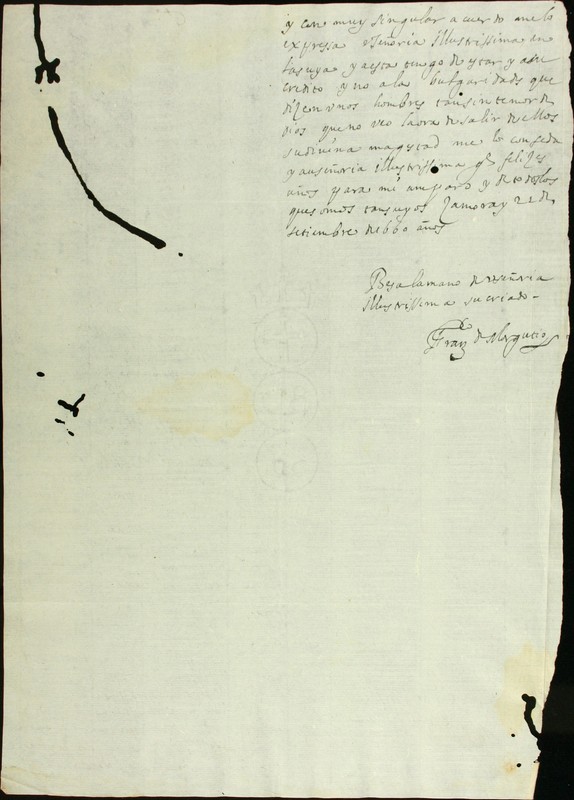 y con muy singular acuerdo me lo
expressa vSeñoria illustrissima en
la suya y a esta tengo de estar y a su
credito y no a la bulgaridad que
dizen unos hombres tan sin temor de
Dios que no veo la ora de salir dellos
su divina magestad me lo conseda
y a uSeñoria illustrissima g.de felizes
años para mi amparo y de todos los
que somos tan suyos Zamora y 22 de
setiembre de 1660 años
Besa la mano de vSeñoria
illustrissima su criado
Fran.co de